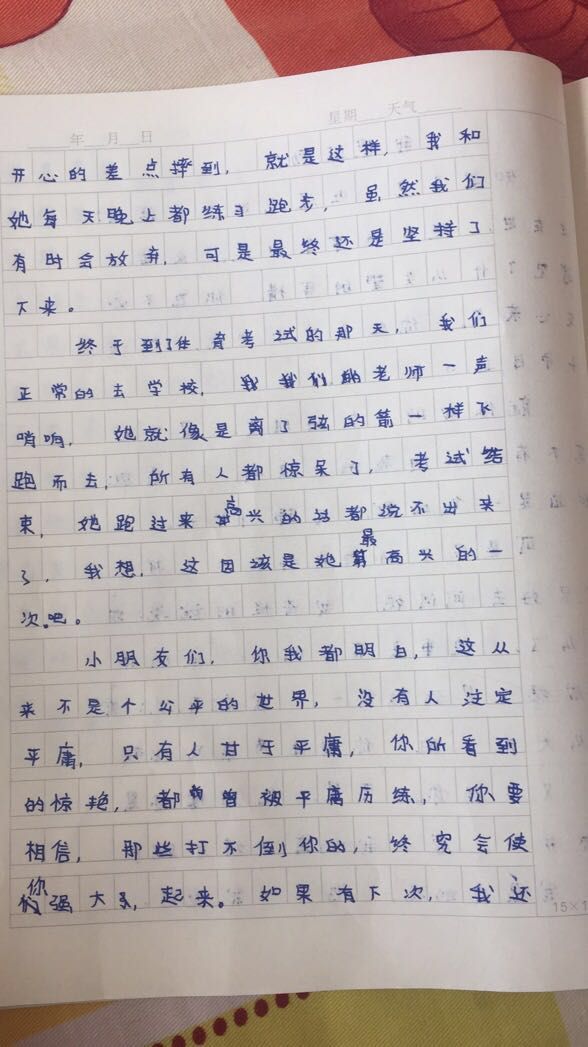 星期 天气
年 月 日
开心的差点摔到，就是这样，我和
她每天晚上都练习跑步，虽然我们
有时会放弃，可是最终还是坚持了
下来。
终于到了体育考试的那天，我们
正常的去学校，我们的老师一声
哨响，她就像是离了弦的箭一样飞
跑而去，所有人都惊呆了，考试结
束，她跑过来高兴的话都说不出来
了，我想，这因该是她最高兴的一
次吧。
小朋友们，你我都明白，这从
来不是个公平的世界，没有人注定
平庸，只有人甘于平庸，你所看到
的惊艳，都曾被平庸历练，你要
相信，那些打不倒你的，终究会使
你强大，起来。如果有下次，我还
15×1